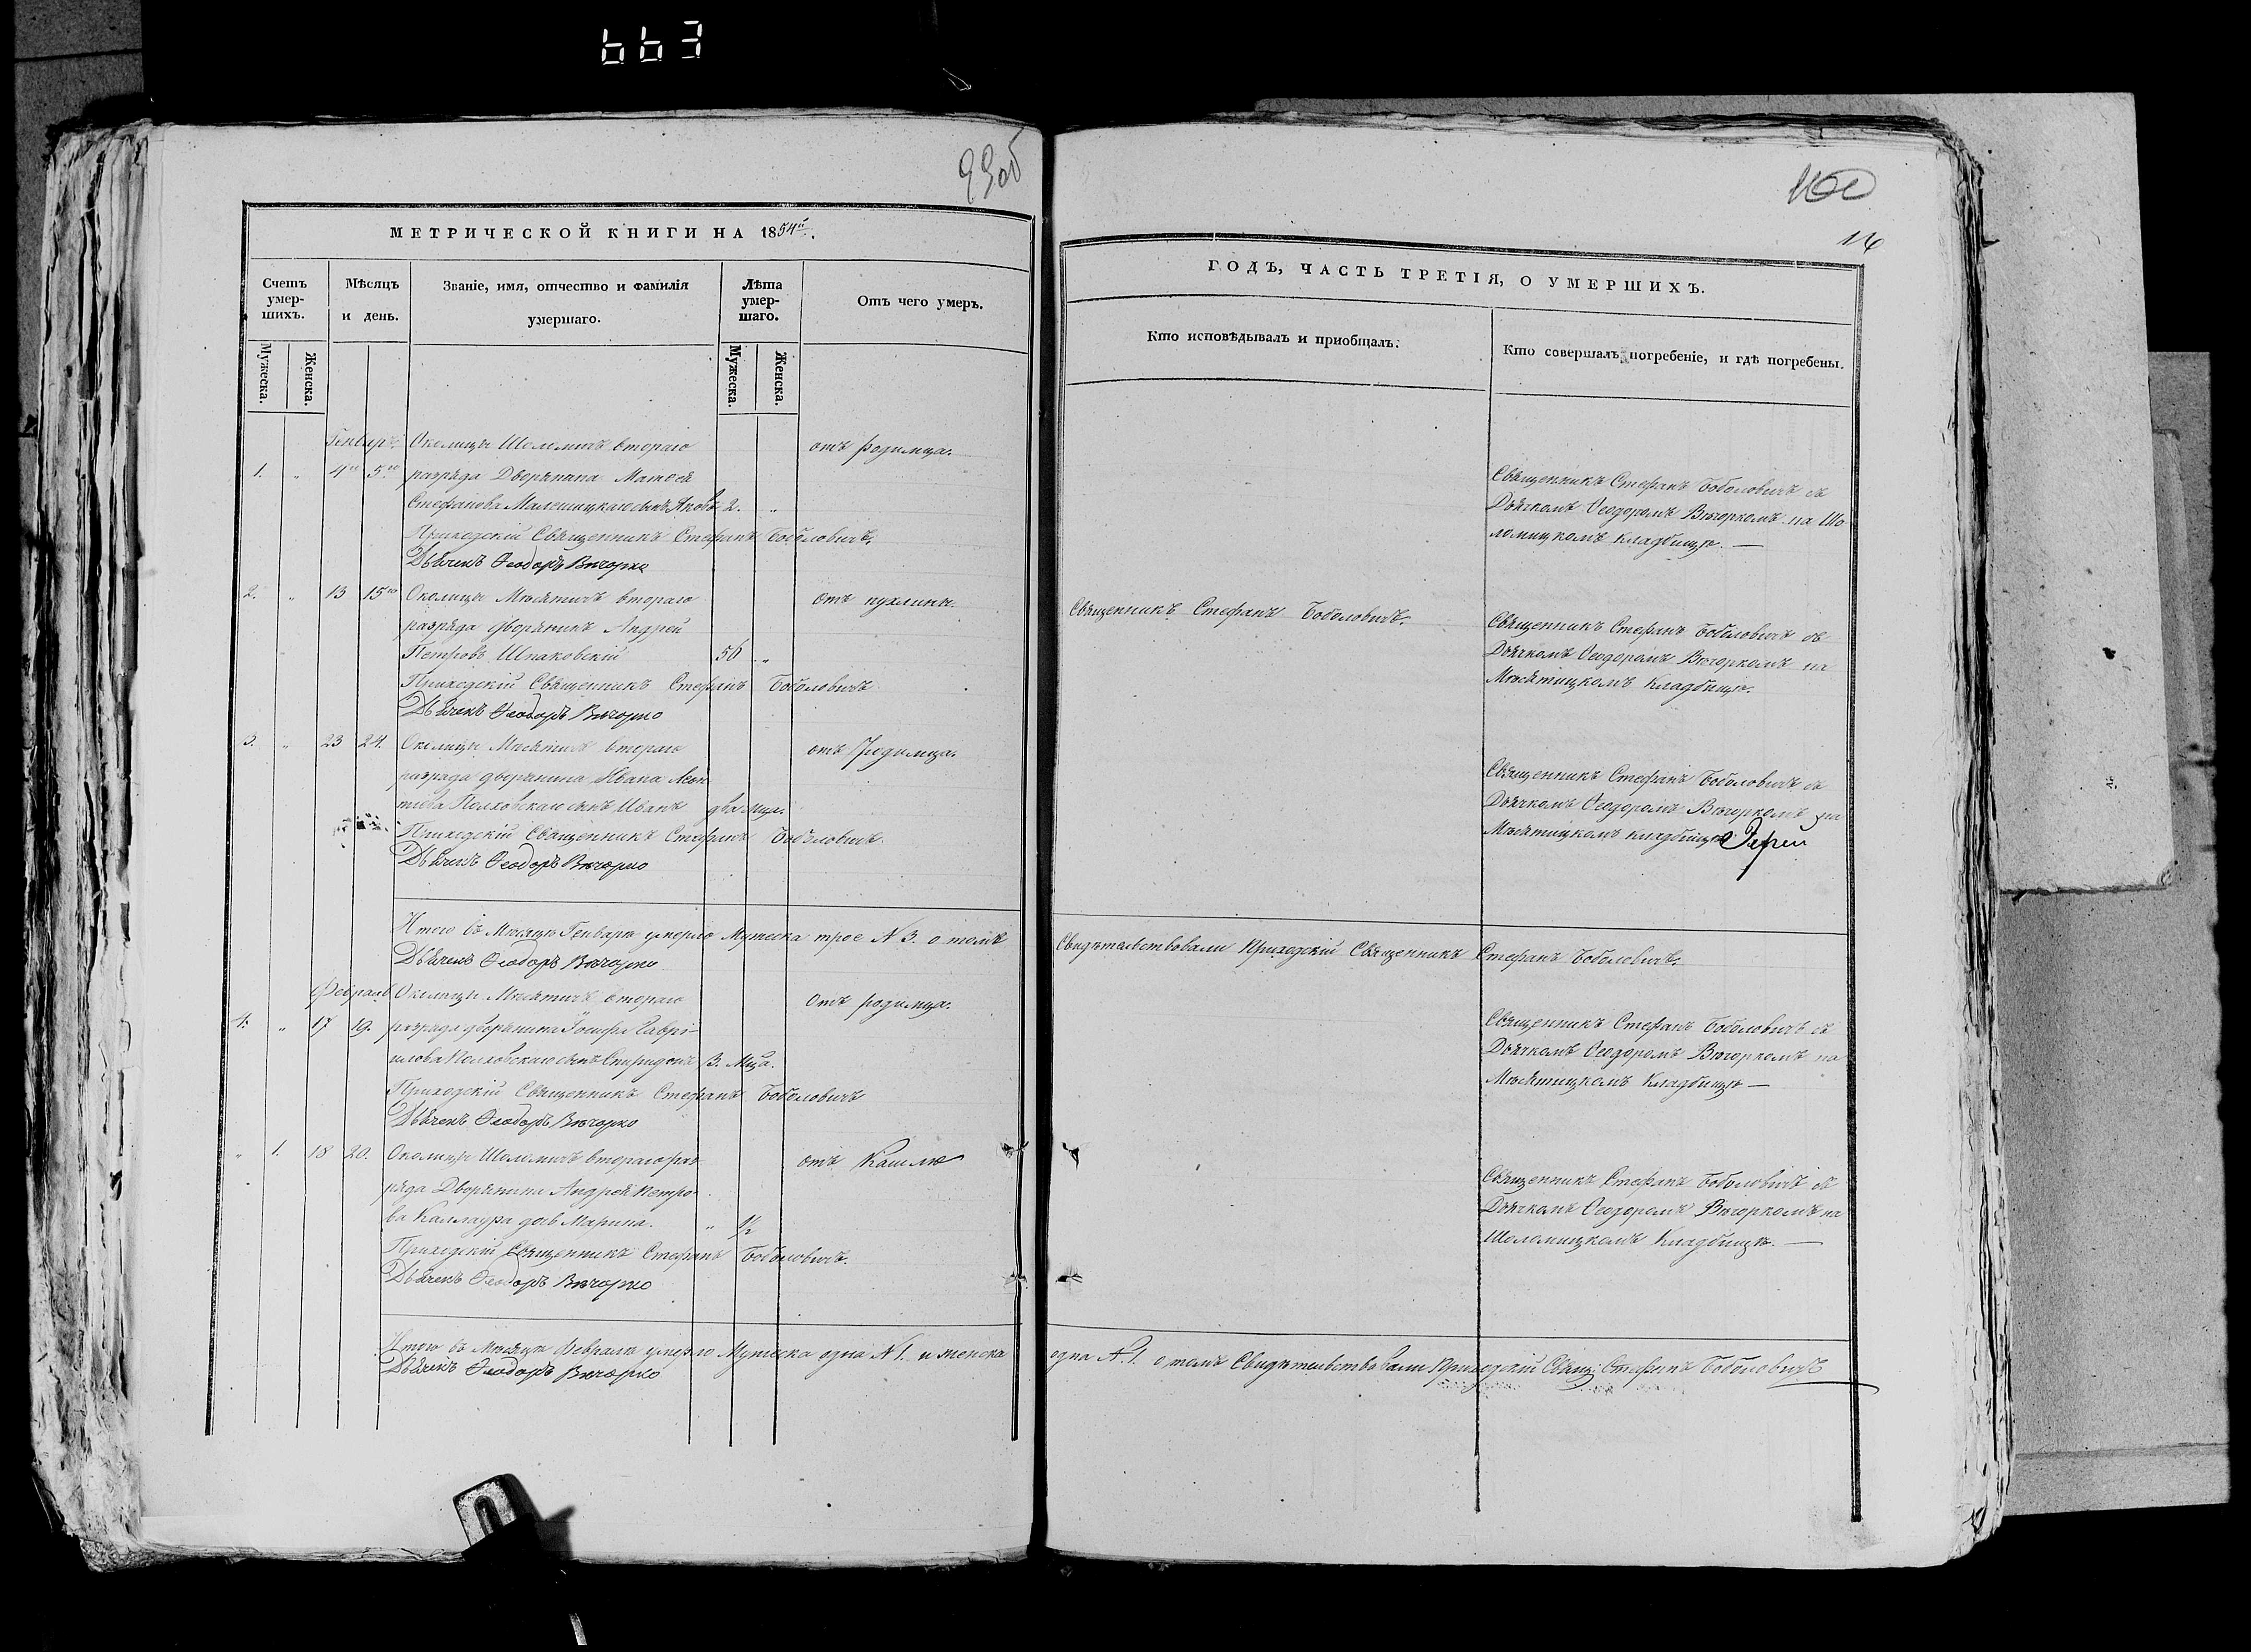 663
99об
МЕТРИЧЕСКОЙ КНИГИ НА 1854й.
Счетъ умер-шихъ.
Мѣсяцъ и день.
Званіе, имя, отчество и фамилія умершаго.
Лѣта умер-шаго.
Отъ чего умеръ.
Мужеска.
Женска.
Мужеска.
Женска.
Генварь. Околицы Шоломичъ втораго отъ родимца.
1. „ 4го 5го разряда Дворянина Матѳея
Стефанова Малешицкаго сынъ Яковъ 2. „
Приходскій Священникъ Стефанъ Боболовичъ.
Дьячекъ Ѳеодоръ Вѣчорко
2. „ 13 15го Околицы Мѣсятичъ втораго отъ пухлины.
разряда дворянинъ Андрей
Петровъ Шпаковскій 56 „
Приходскій Священникъ Стефанъ Боболовичъ
Дьячекъ Ѳеодоръ Вѣчорко
3. „ 23 24. Околицы Мѣсятичъ втораго отъ Родимца.
разряда дворянина Ивана Леон
тіева Полховскаго сынъ Иванъ два Мца.
Приходскій Священникъ Стефанъ Боболовичъ.
Дьячекъ Ѳеодоръ Вѣчорко
Итого въ Мѣсяцѣ Генварѣ умерло Мужеска трое N 3. о томъ
Дьячекъ Ѳеодоръ Вѣчорко
Февраль Околицы Мѣсятичъ втораго Отъ родимца.
4. „ 17 19. разряда дворянина Іосифа Гаврі-
илова Полховскаго сынъ Спиридонъ 3. Мца.
Приходскій Священникъ Стефанъ Боболовичъ
Дьячекъ Ѳеодоръ Вѣчорко
„ 1. 18 20. Околицы Шоломичъ втораго раз отъ Кашлю
ряда Дворянина Андрей Петро-
ва Каллаура дов Марина. „ 1/2
Приходскій Священникъ Стефанъ Боболовичъ.
Дьячекъ Ѳеодоръ Вѣчорко
Итого въ Мѣсяцѣ Февралѣ умерло Мужеска одна N 1. и женска
Дьячекъ Ѳеодоръ Вѣчорко
100
16
ГОДЪ, ЧАСТЬ ТРЕТІЯ, О УМЕРШИХЪ.
Кто исповѣдывалъ и приобщалъ.
Кто совершалъ погребеніе, и гдѣ погребены.
Священникъ Стефанъ Боболовичъ съ
Дьячкомъ Ѳеодоромъ Вѣчоркомъ на Шо
ломицкомъ кладбищѣ. —
Священникъ Стефанъ Боболовичъ.
Священникъ Стефанъ Боболовичъ съ
Дьячкомъ Ѳеодоромъ Вѣчоркомъ на
Мѣсятицкомъ Кладбищѣ.
Священникъ Стефанъ Боболовичъ съ
Дьячкомъ Ѳеодоромъ Вѣчоркомъ на
Мѣсятицкомъ кладбищѣ
Свидѣтельствовали Приходскій Священникъ Стефанъ Боболовичъ.
Священникъ Стефанъ Боболовичъ съ
Дьячкомъ Ѳеодоромъ Вѣчоркомъ на
Мѣсятицкомъ Кладбищѣ —
Священникъ Стефанъ Боболовичъ съ
Дьячкомъ Ѳеодоромъ Вѣчоркомъ на
Шоломицкомъ Кладбищѣ. —
одна N. 1. о томъ Свидѣтельствовали Приходскій Свящ: Стефанъ Боболовичъ